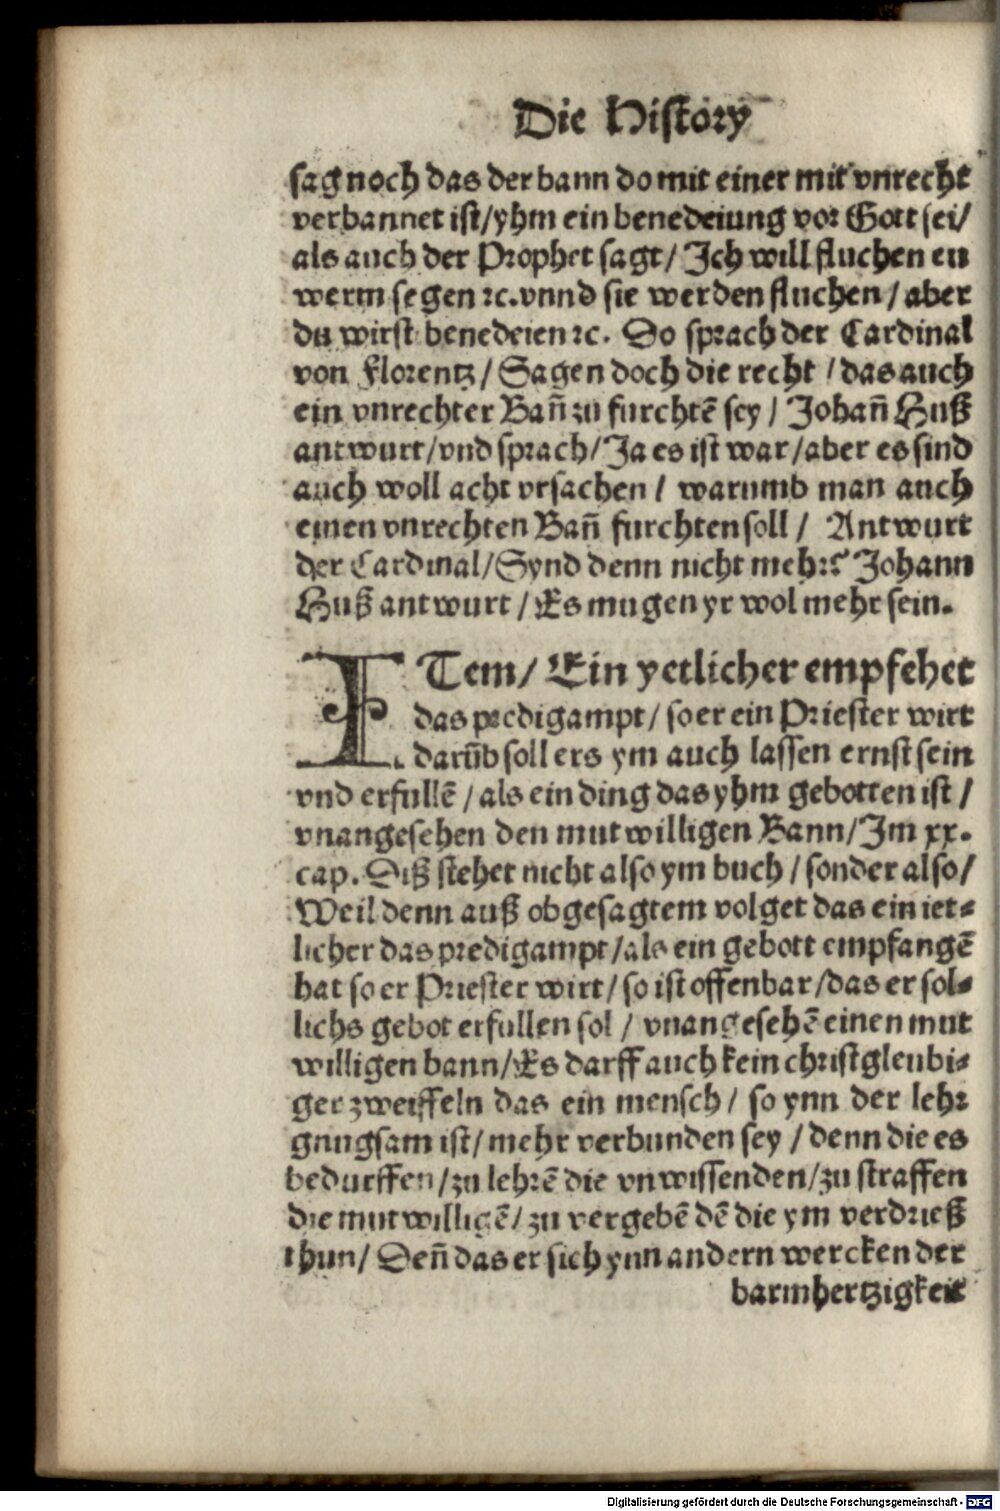 Die History
sag noch das der bann do mit einer mit vnrecht
verbannet ist/yhm ein benedeiung vor Gott sei/
als auch der Prophet sagt/Ich will fluchen eu
werm segen ꝛc.vnnd sie werden fluchen/aber
du wirst benedeien ꝛc. So sprach der Cardinal
von Florentz/Sagen doch die recht/das auch
ein vnrechter Bañ zu furchtē sey/Johañ Huß
antwurt/vnd sprach/Ja es ist war/aber es sind
auch woll acht vrsachen/warumb man auch
einen vnrechten Bañ furchten soll/Antwurt
der Cardinal/Synd denn nicht mehr? Johann
Huß antwurt/Es mugen yr wol mehr sein.
ITem/Ein yetlicher empfehet
das predigampt/so er ein Priester wirt
darūb soll ers ym auch lassen ernst sein
vnd erfullē/als ein ding das yhm gebotten ist/
vnangesehen den mutwilligen Bann/Im xx.
cap.Diß stehet nicht also ym buch/sonder also/
Weil denn auß obgesagtem volget das ein iet⸗
licher das predigampt/als ein gebott empfangē
hat so er Priester wirt/so ist offenbar/das er sol⸗
lichs gebot erfullen sol/vnangesehē einen mut
willigen bann/Es darff auch kein christgleubi⸗
ger zweiffeln das ein mensch/so ynn der lehr
gnugsam ist/mehr verbunden sey/denn die es
bedurffen/zu lehrē die vnwissenden/zu straffen
die mutwilligē/zu vergebē dē die ym verdrieß
thun/Deñ das er sich ynn andern wercken der
barmhertzigkeit
Digitalisierung gefördert durch die Deutsche Forschungsgemeinschaft - DFG